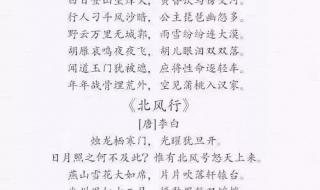 行人刁斗风沙暗，公主琵琶幽怨多。
野云万里无城郭，雨雪纷纷连大漠。
胡雁哀鸣夜夜飞，胡儿眼泪双双落。
闻道玉门犹被遮，应将性命逐轻车。
年年战骨埋荒外，空见蒲桃入汉家。
《北风行》
[唐]李白
烛龙栖寒门，光曜犹旦开。
日月照之何不及此？惟有北风号怒天上来。
燕山雪花大如席，片片吹落轩辕台。